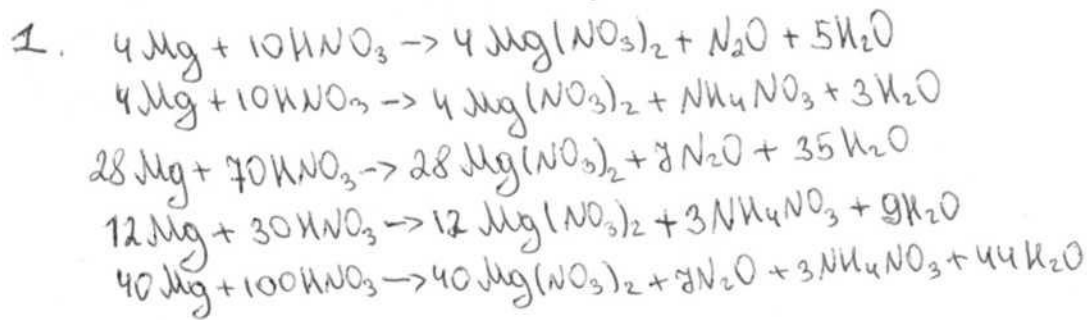 1. 4Mg + 10HNO₃ -> 4Mg(NO₃)₂ + N₂O + 5H₂O
4Mg + 10HNO₃ -> 4Mg(NO₃)₂ + NH₄NO₃ + 3H₂O
28Mg + 70HNO₃ -> 28Mg(NO₃)₂ + 7N₂O + 35H₂O
12Mg + 30HNO₃ -> 12Mg(NO₃)₂ + 3NH₄NO₃ + 9H₂O
40Mg + 100HNO₃ -> 40Mg(NO₃)₂ + 7N₂O + 3NH₄NO₃ + 44H₂O